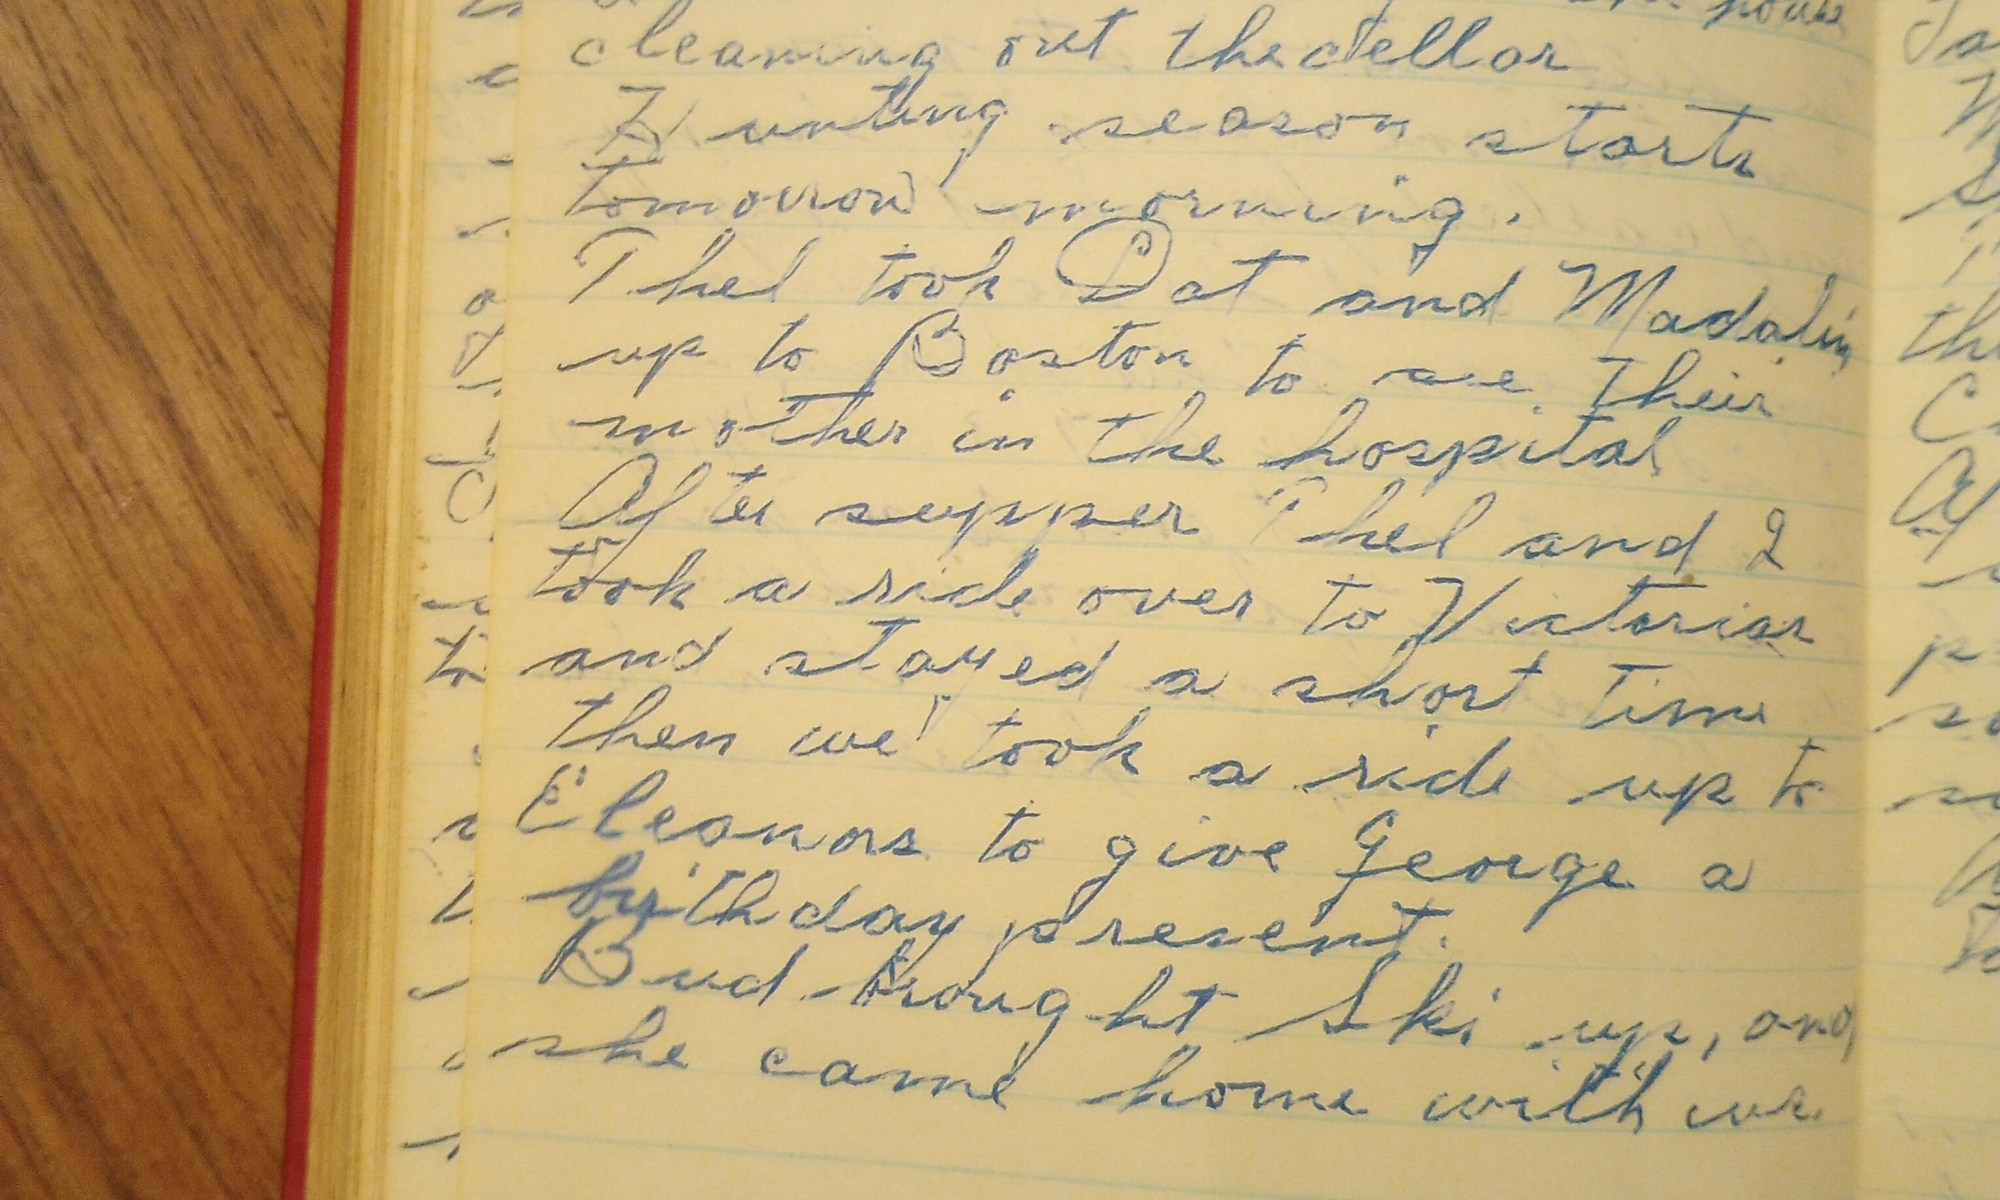 house
cleaning out the cellar
Hunting season starts
tomorrow morning.
Thel took Dot and Madalin
up to Boston to see their
mother in the hospital
After supper Thel and I
took a ride over to Victorias
and stayed a short time
then we took a ride up to
Eleanors to give George a
birthday present.
Bud brought Ski up, and
she came home with us.